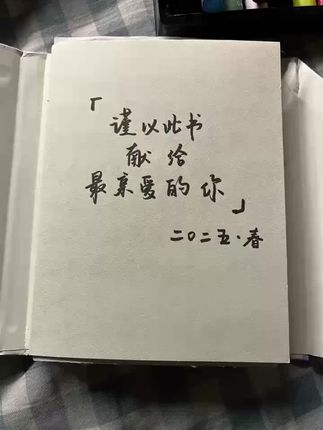 「谨以此书
献给
最亲爱的你」
二〇二五·春